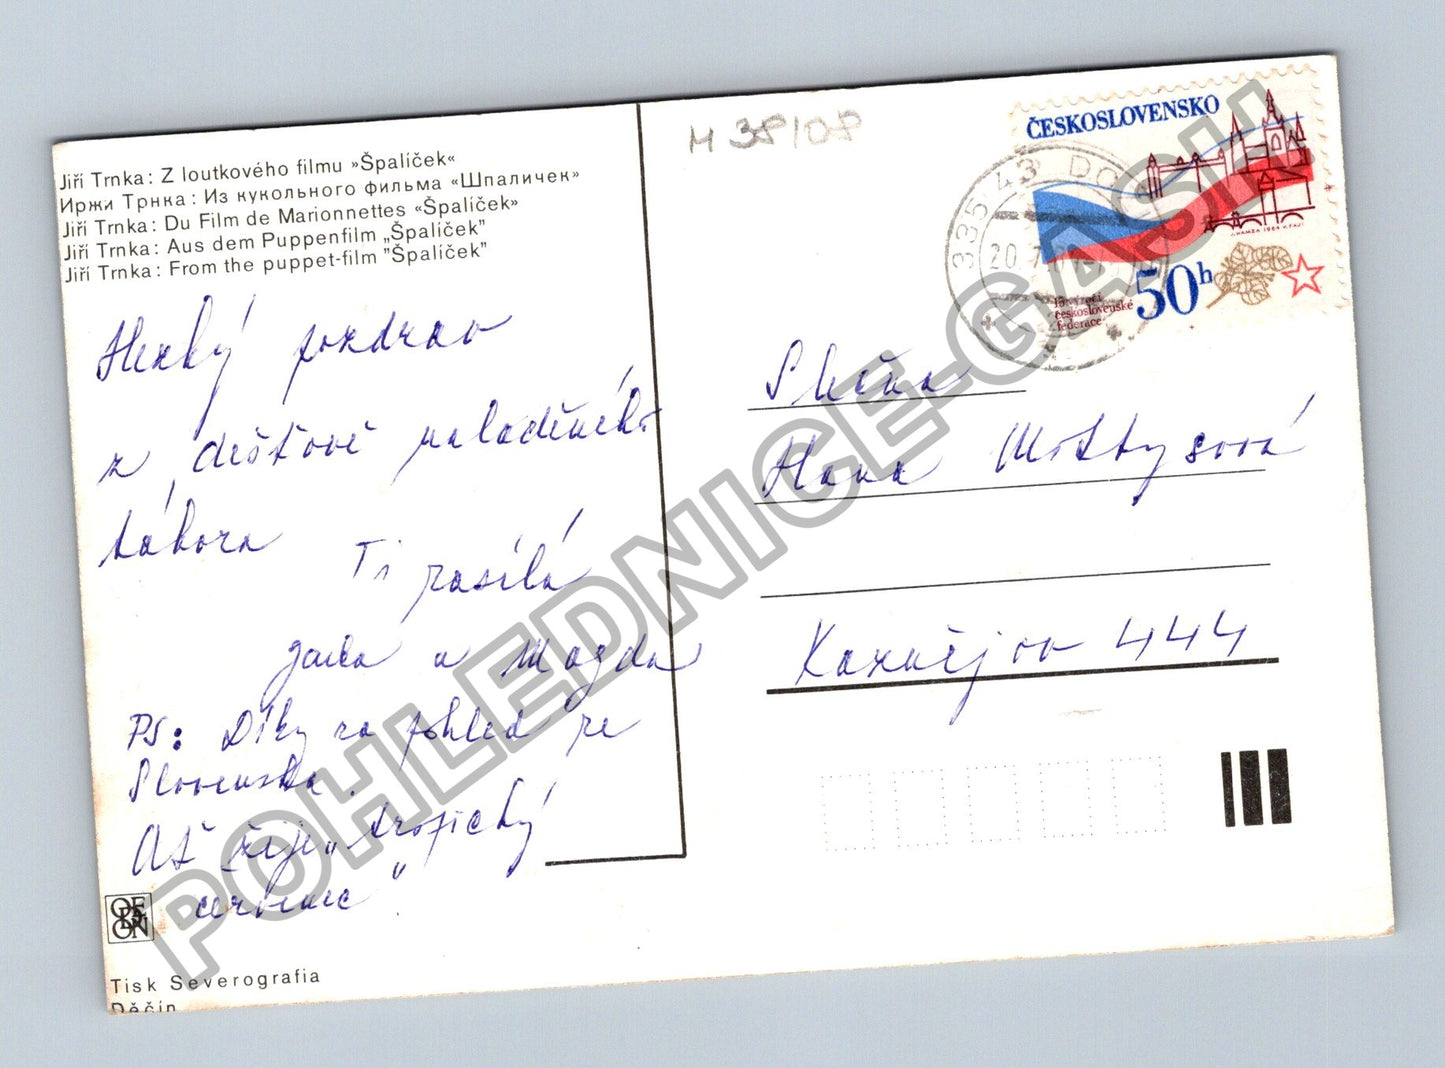 Jiří Trnka: Z loutkového filmu »Špalíček«
Иржи Трнка: Из кукольного фильма «Шпаличек»
Jiří Trnka: Du Film de Marionnettes «Špalíček»
Jiří Trnka: Aus dem Puppenfilm „Špalíček”
Jiří Trnka: From the puppet-film ”Špalíček”
Hezký pozdrav
z deštově naladěného
tábora
Ti posílá
a Magda
PS: Díky za pohled ze
Slovenska.
Ať žije „tropický
červenec“
Tisk Severografia
Děčín
M 38/08
ČESKOSLOVENSKO
J. HAMZA 1984 V. FAJT
50h
15. výročí
československé
federace
335 43 DO
20.7.
Slečna
Hana Mottysová
Kaznějov 444
POHLEDNICE-GASH